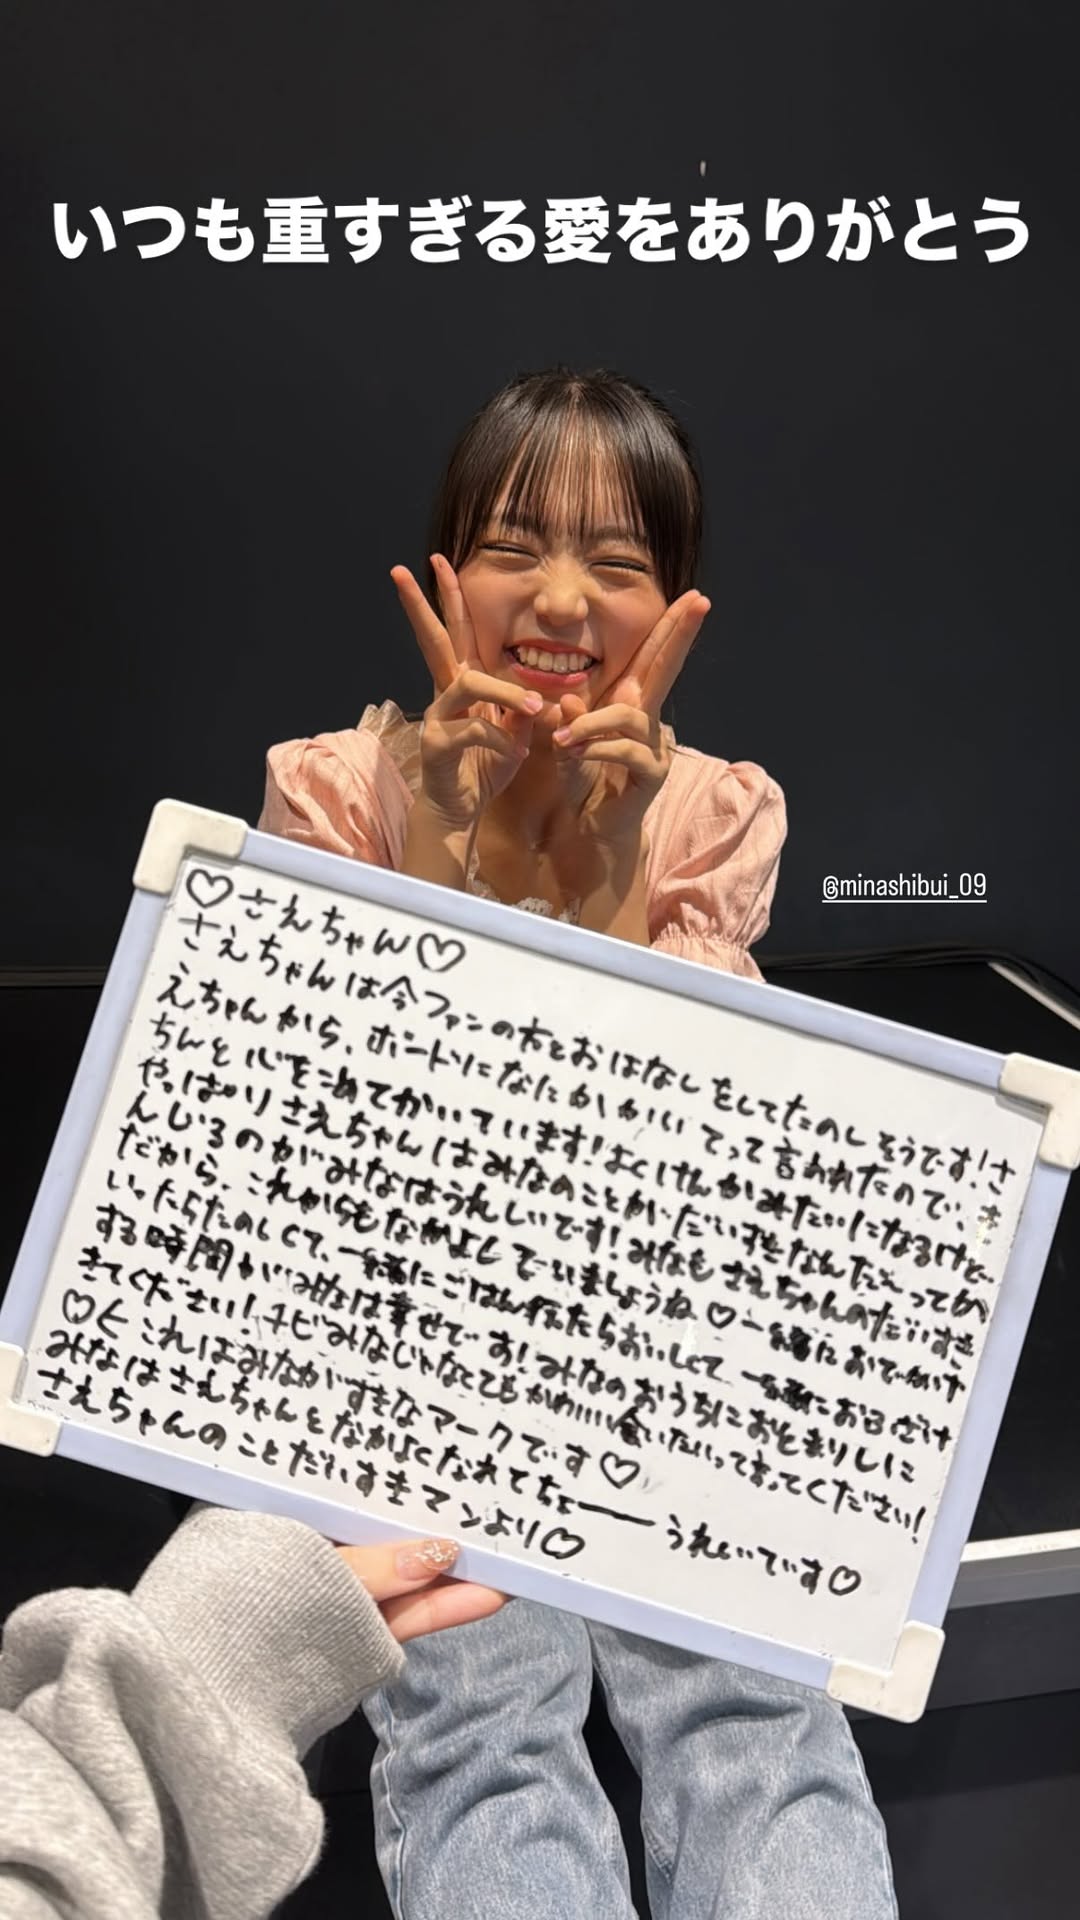 いつも重すぎる愛をありがとう
@minashibui_09
♡さえちゃん♡
さえちゃんは今ファンの方とおはなしをしてたのしそうです!さ
えちゃんから、ボードになにかかいてって言われたので、き
ちんと心をこめてかいています!よくけんかみたいになるけど
やっぱりさえちゃんはみなのことがだいすきなんだってか
んじるのがみなはうれしいです!みなもさえちゃんのだいすき
だから、これからもなかよしでいましょうね♡一緒におでかけ
いったらたのしくて、一緒にごはん行ったらおいしくて、一緒におる
する時間がみなは幸せです!みなのおうちにおとまりしに
きてください!チビみなじゃなくてもかわいい会いたいって言ってください!
♡くこれはみながすきなマークです♡
みなはさえちゃんとなかよくなれてちょーーうれしいです♡
さえちゃんのことだいすきマンより♡